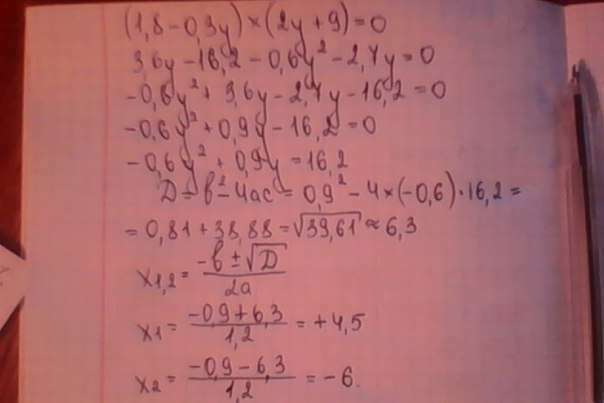 (1,8-0,3y)×(2y+9)=0
3,6y-16,2-0,6y²-2,7y=0
-0,6y²+3,6y-2,7y-16,2=0
-0,6y²+0,9y-16,2=0
-0,6y²+0,9y=16,2
D=b²-4ac=0,9²-4×(-0,6)·16,2=
=0,81+38,88=√39,61≈6,3
x1,2=(-b±√D)/2a
x1=(-0,9+6,3)/1,2=+4,5
x2=(-0,9-6,3)/1,2=-6.